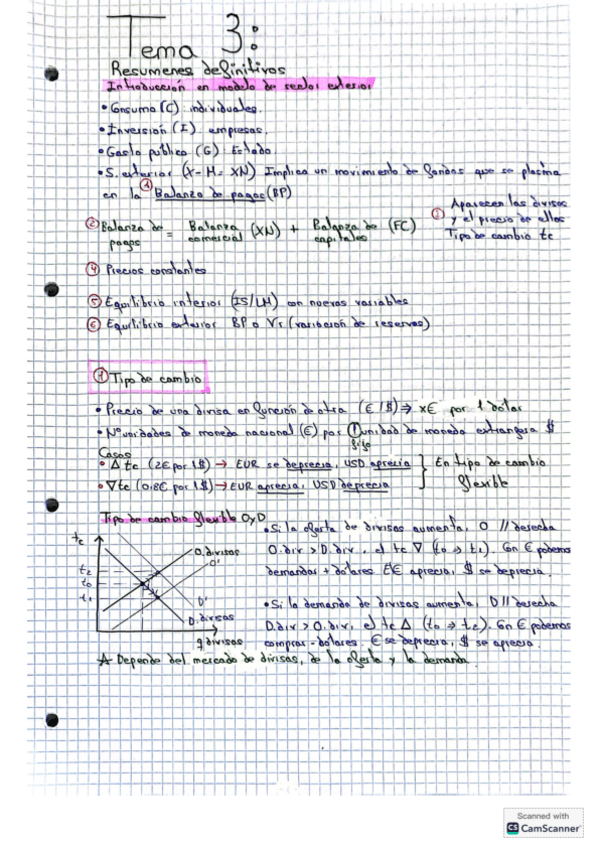 Tema 3:
Resumenes definitivos
Introducción en modelo de sector exterior
• Consumo (C): individuales.
• Inversión (I): empresas.
• Gasto público (G): Estado.
• S. exterior (X-M=XN) Implica un movimiento de fondos que se plasma
en la Balanza de pagos (BP)
② Balanza de pagos = Balanza comercial (XN) + Balanza de capitales (FC)
Aparecen las divisas
y el precio de ellos
Tipo de cambio tc
④ Precios constantes
⑤ Equilibrio interior (IS/LM) con nuevas variables
⑥ Equilibrio exterior BP o Vr (variación de reservas)
① Tipo de cambio
• Precio de una divisa en función de otra (€/$) → x€ por 1 dólar
• Nº unidades de moneda nacional (€) por 1 unidad de moneda extrangera $
fijo
Casos
• Δ tc (2€ por 1$) → EUR se deprecia, USD aprecia
• ∇ tc (0,8€ por 1$) → EUR aprecia, USD deprecia
} En tipo de cambio
flexible
Tipo de cambio flexible O y D
tc
t2
t0
t1
O. divisas
O'
D'
D. divisas
q divisas
• Si la oferta de divisas aumenta, O // derecha
O.div > D.div, el tc ∇ (t0 → t1). Con € podemos
demandar + dolares €€ aprecia, $ se deprecia.
• Si la demanda de divisas aumenta, D // derecha
D.div > O.div, el tc Δ (t0 → t2). Con € podemos
comprar - dolares € se deprecia, $ se aprecia.
Depende del mercado de divisas, de la oferta y la demanda.
Scanned with
CS CamScanner